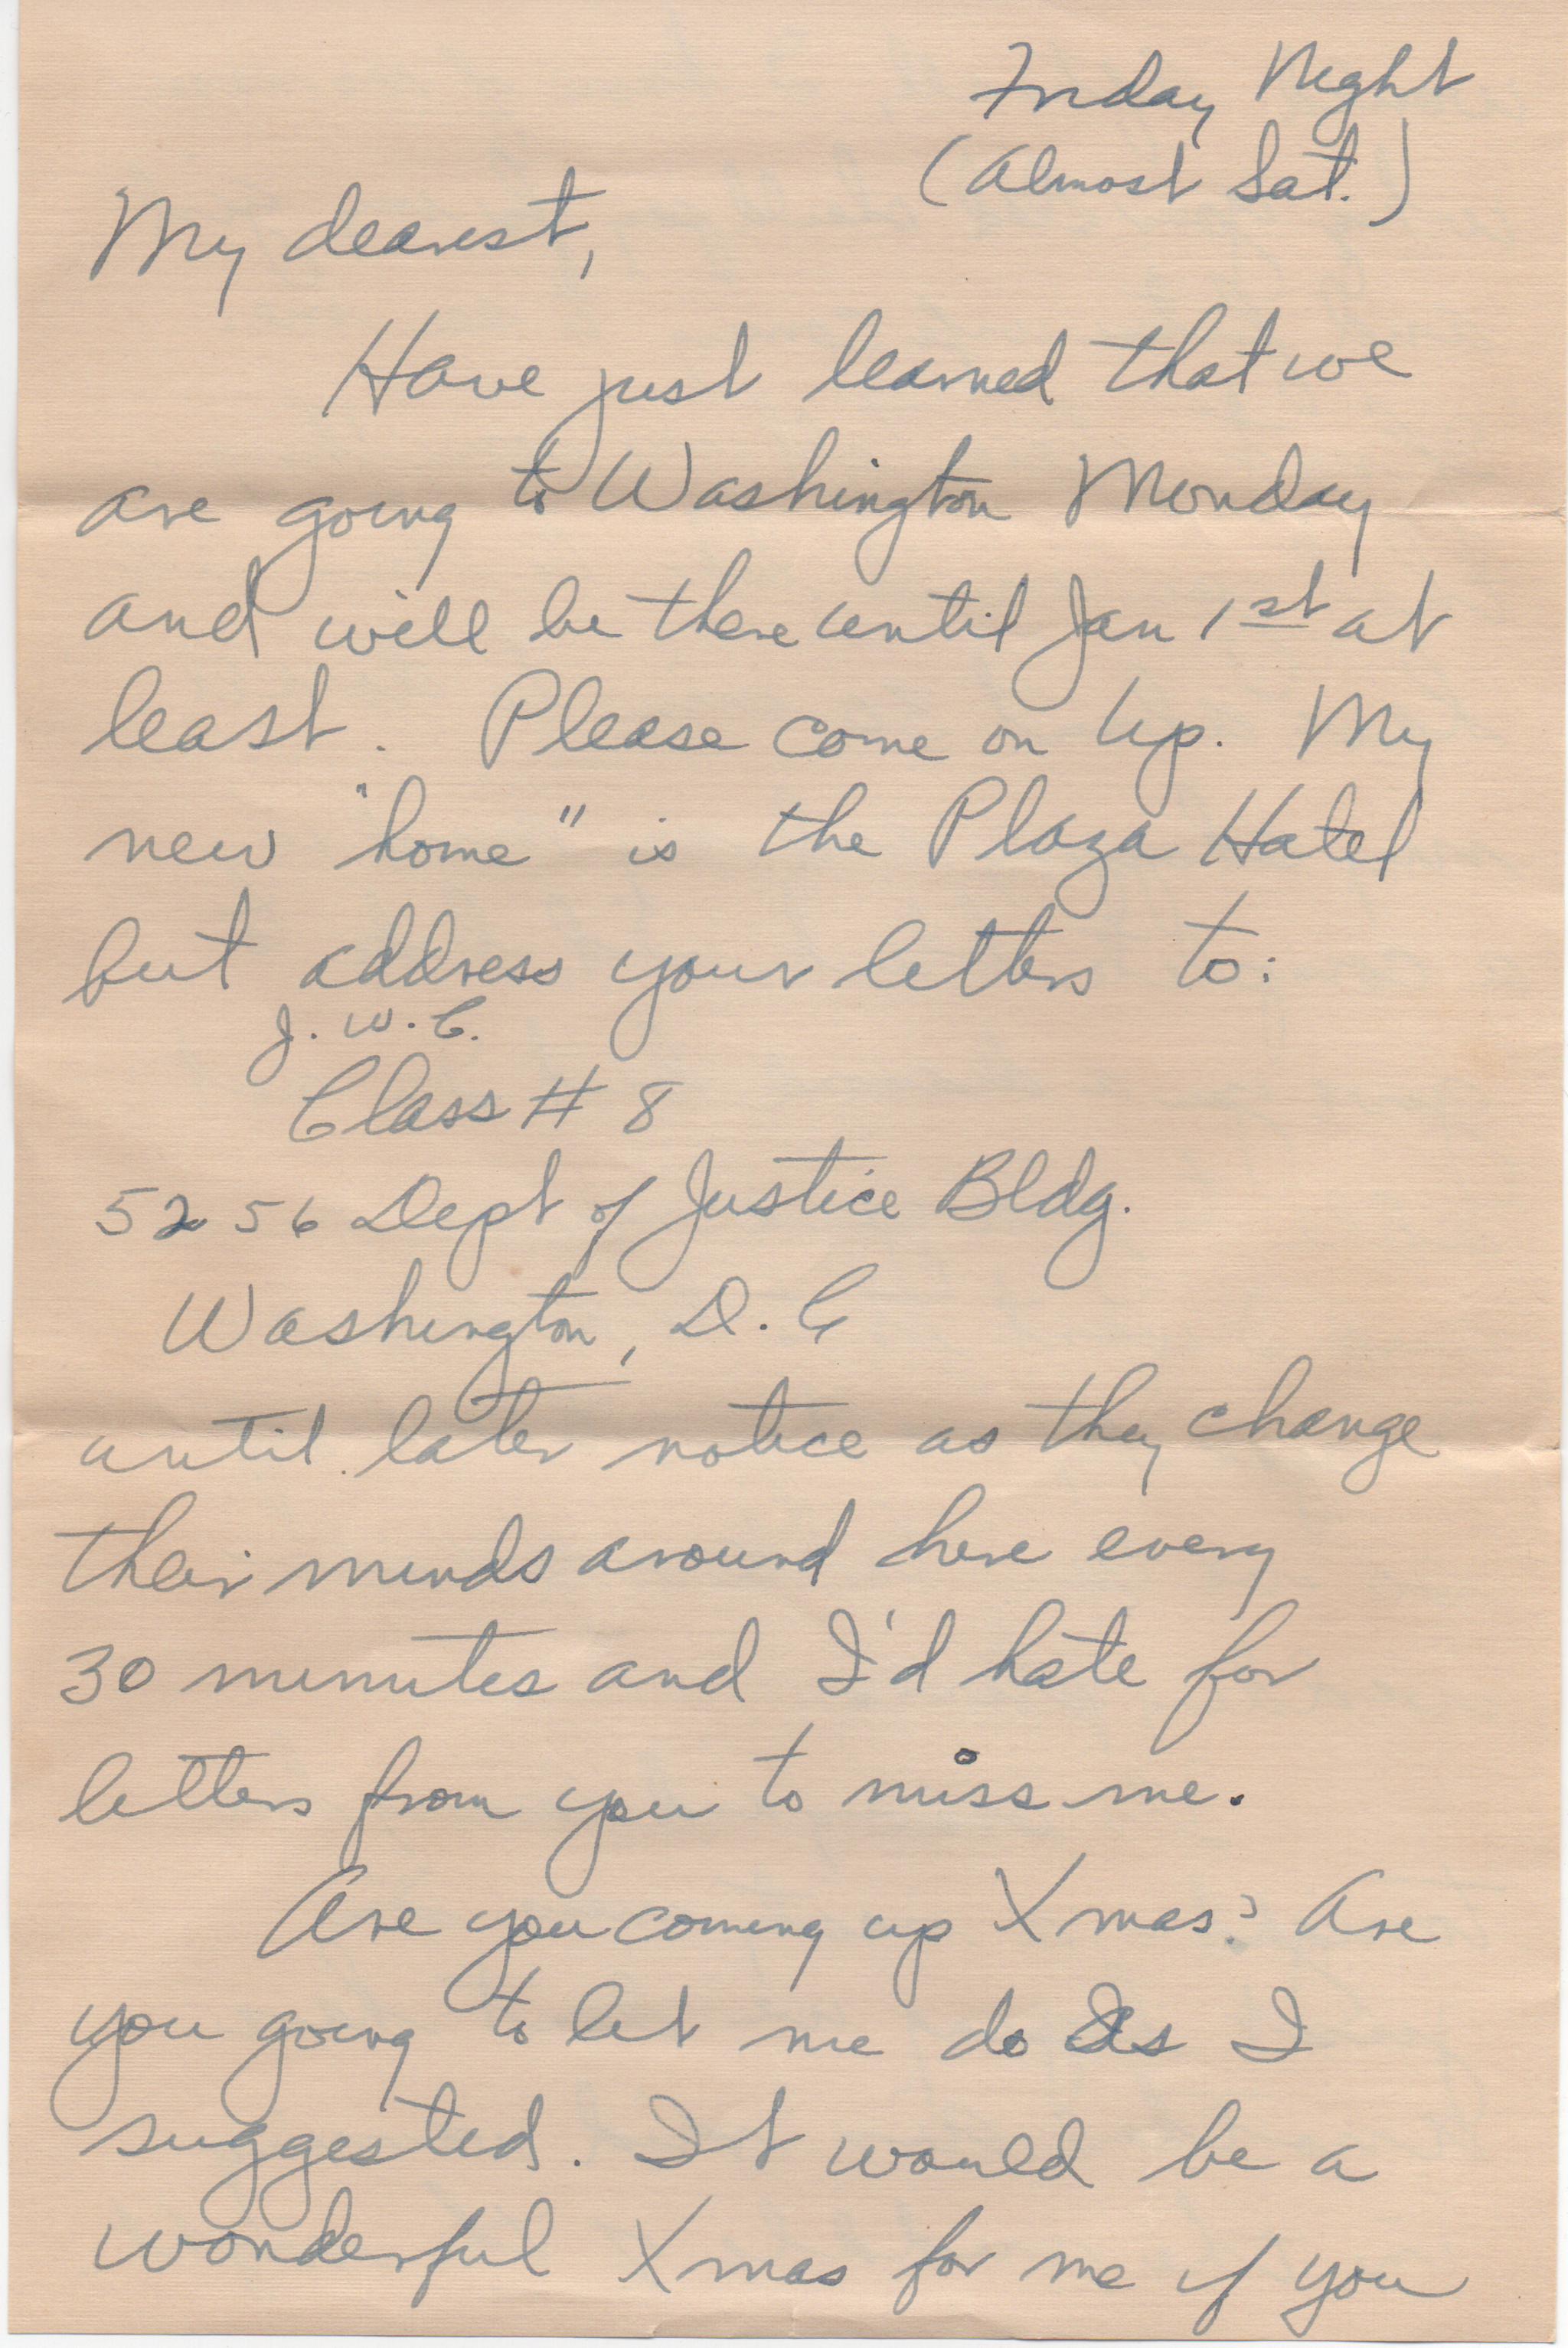 Friday Night
(Almost Sat.)
My dearest,
Have just learned that we
are going to Washington Monday
and will be there until Jan 1st at
least. Please come on up. My
new "home" is the Plaza Hotel
but address your letters to:
J. W. C.
Class # 8
5256 Dept of Justice Bldg.
Washington, D. C
until later notice as they change
their minds around here every
30 minutes and I'd hate for
letters from you to miss me.
Are you coming up Xmas? Are
you going to let me do as I
suggested. It would be a
wonderful Xmas for me if you